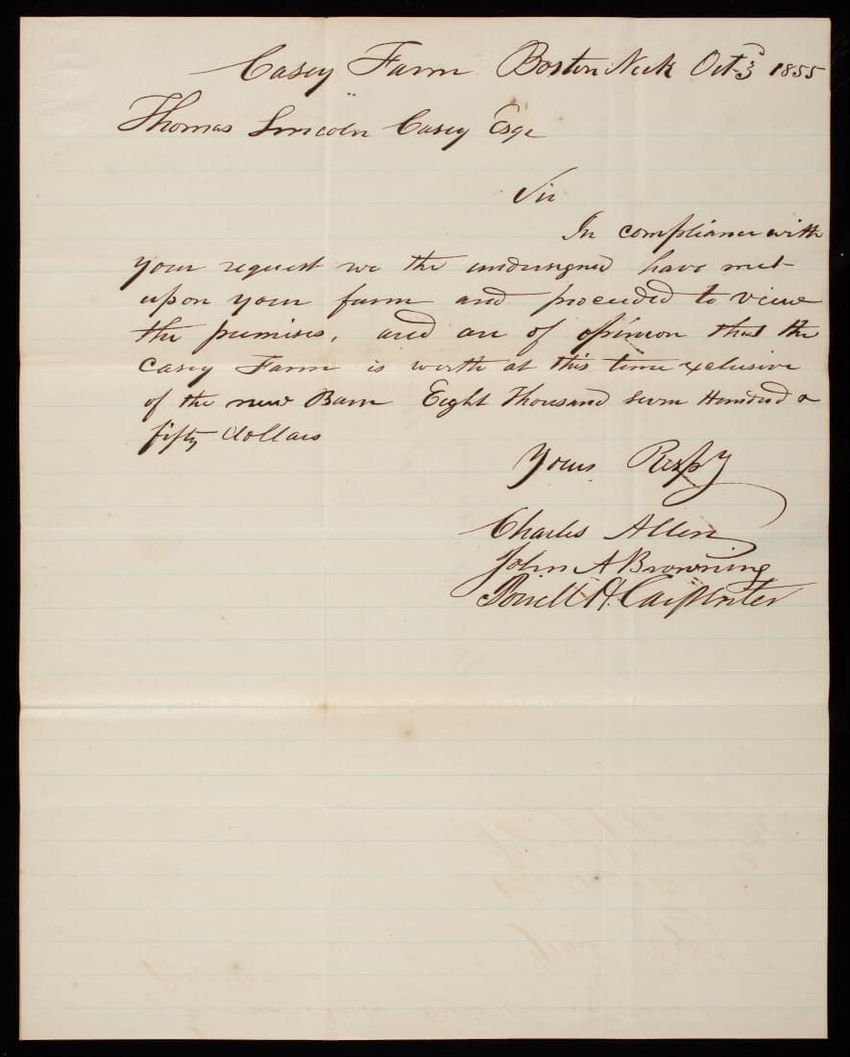 Casey Farm Boston Neck Oct 3 1855
Thomas Lincoln Casey Esqr
Sir
In compliance with
your request we the undersigned have met
upon your farm and proceeded to view
the premises, and are of opinion that the
Casey Farm is worth at this time exclusive
of the new Barn Eight Thousand seven Hundred &
fifty dollars
Yours Respy
Charles Allen
John A Browning
H. Carpenter